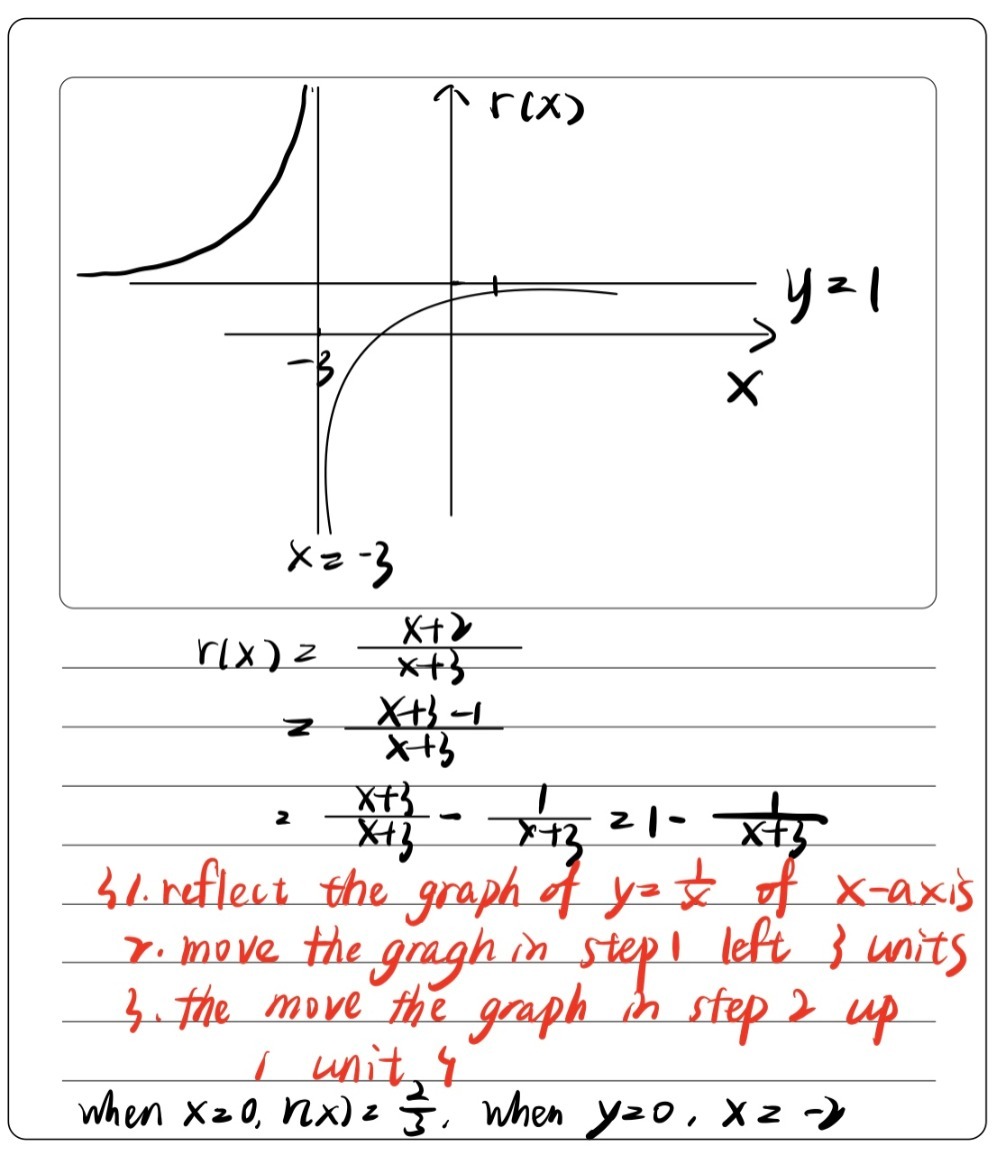 r(x)
y=1
-3
x
x=-3
r(x) = x+2/x+3
= x+3-1/x+3
= x+3/x+3 - 1/x+3 = 1- 1/x+3
1. reflect the graph of y=1/x of x-axis
2. move the gragh in step1 left 3 units
3. the move the graph in step 2 up
1 unit
when x=0, r(x)=2/3. when y=0, x=-2